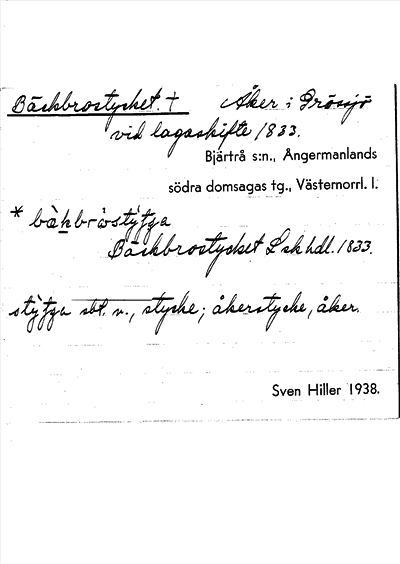 Bäckbrostycket. † Åker i Grössjö
vid lagaskifte 1833.
Bjärtrå s:n., Ångermanlands
södra domsagas tg., Västernorrl. l.
Bäckbrostycket Lskhdl. 1833.
sbt. n., stycke; åkerstycke, åker.
Sven Hiller 1938.